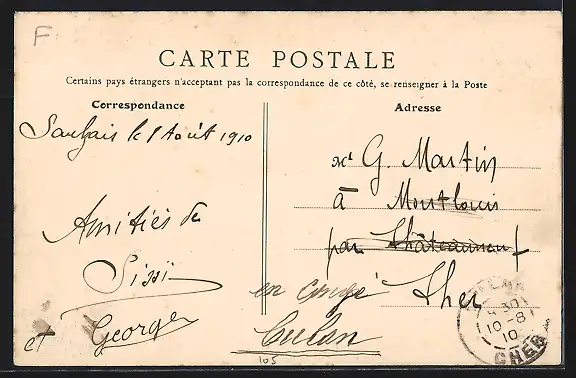 F
CARTE POSTALE
Certains pays étrangers n'acceptant pas la correspondance de ce côté, se renseigner à la Poste
Correspondance
Adresse
Saulzais le 1 Août 1910
Mr G. Martin
à Montlouis
par Châteauneuf
Cher
Amitiés de
Sissi
et George
en congé
Culan
105
30
10-8
10
CHER